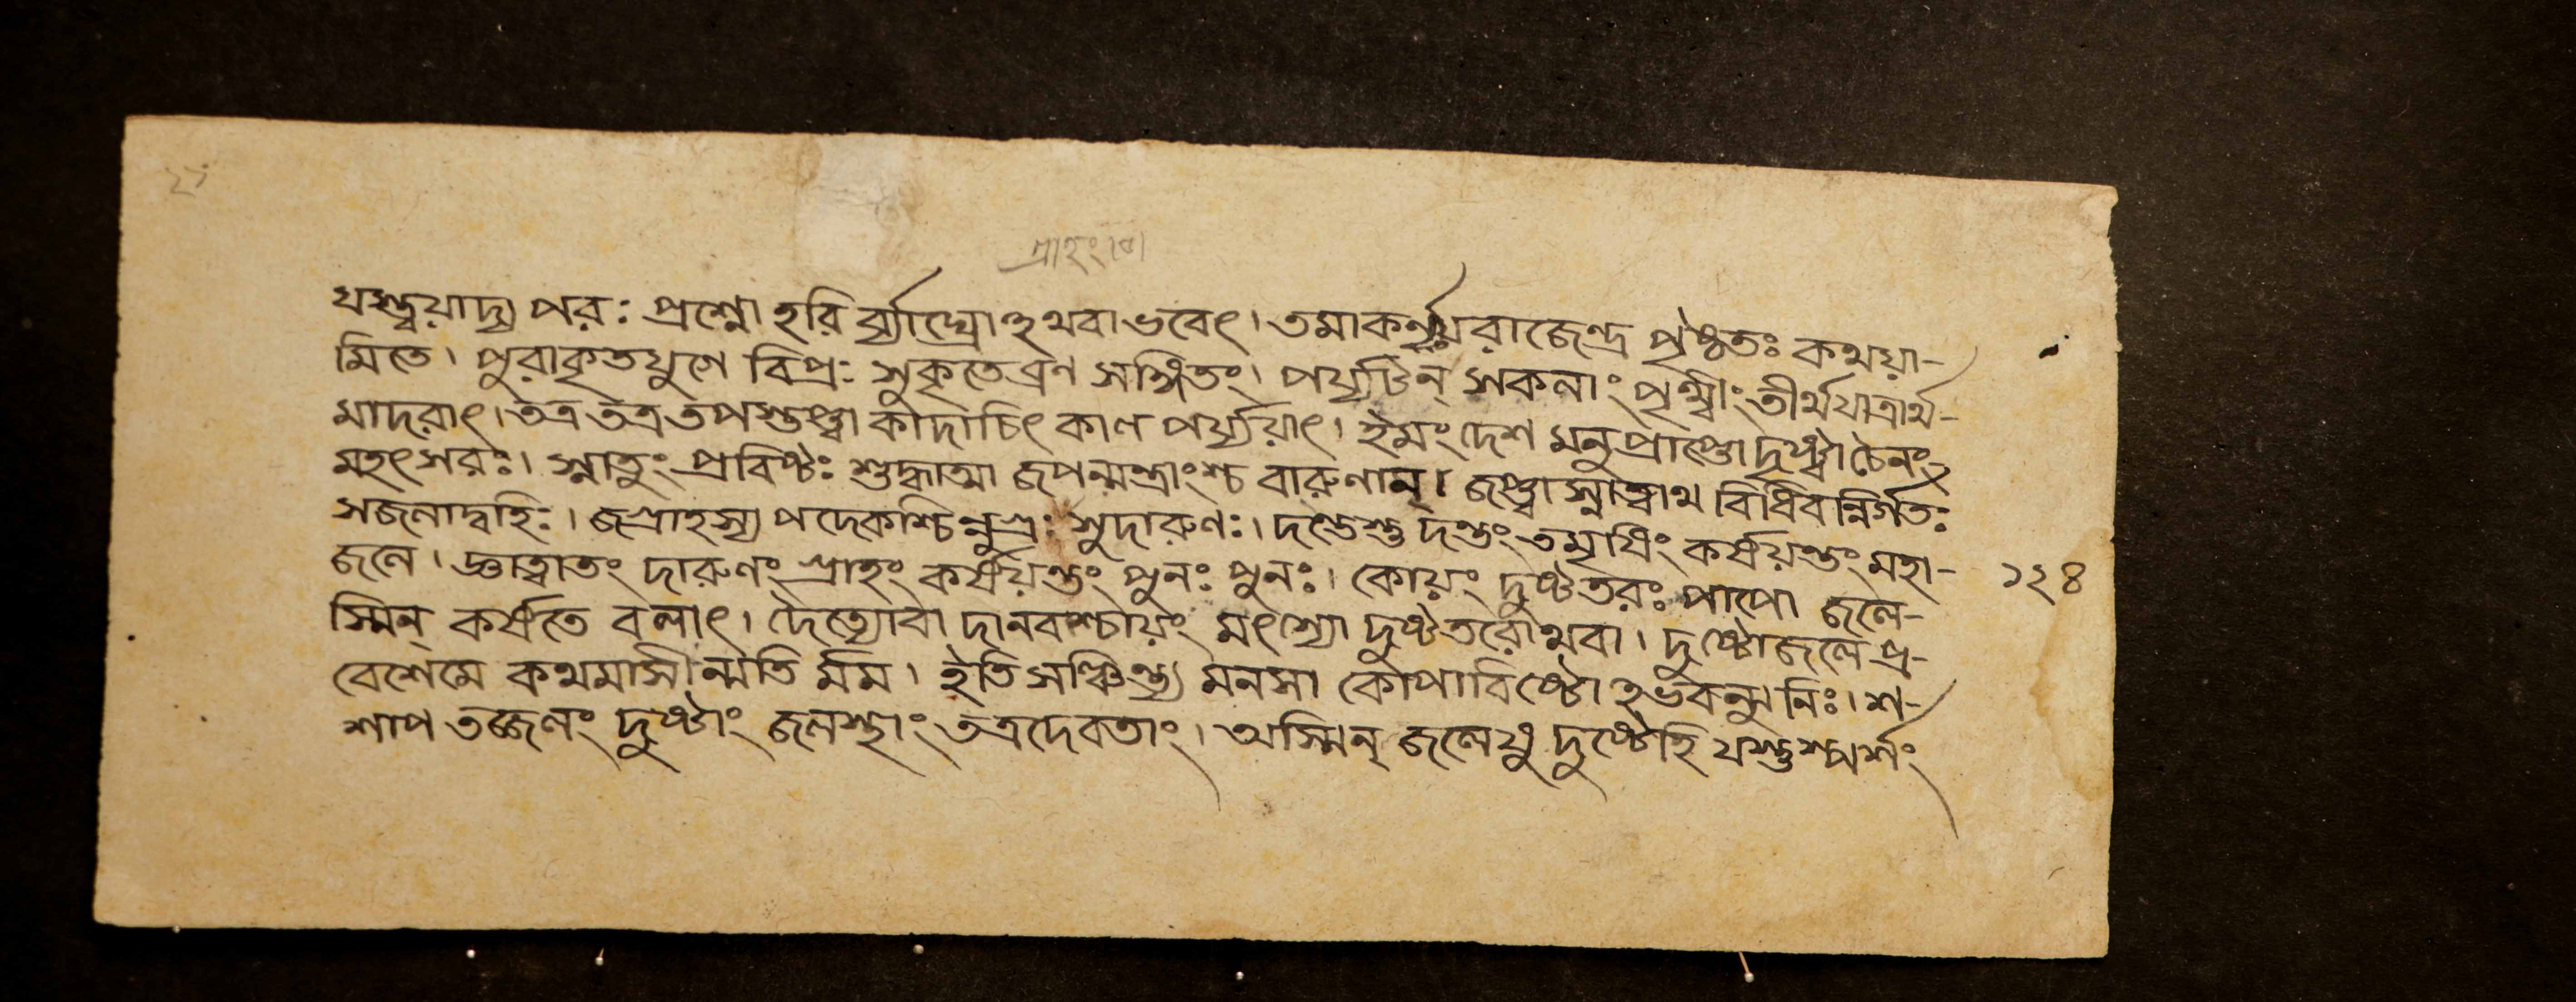 গ্রাহং
যস্ত্বয়াদ্য পরঃ প্রশ্নো হরি র্ব্ব্যাঘ্রোঽথবাভবেৎ। তমাকর্ণ্ণয় রাজেন্দ্র পৃষ্ঠতঃ কথয়া-
মিতে। পুরাকৃতযুগে বিপ্রঃ সুকৃতেব্রণ সঙ্গিতং। পর্য্যটন্ সকলাং পৃথ্বীং তীর্থযাত্রার্থ-
মাদরাৎ। তত্র তত্র তপস্তপ্ত্বা কাদাচিৎ কাল পর্য্যয়াৎ। ইমং দেশ মনুপ্রাপ্তো দৃষ্ট্বাচৈনং
মহৎসরঃ। স্নাতুং প্রবিষ্টঃ শুদ্ধাত্মা জপন্মন্ত্রাংশ্চ বারুণান্। জপ্ত্বাস্নাত্বাথ বিধিবন্নির্গতঃ
সজলাদ্বহিঃ। জগ্রাহস্য পদেকশ্চিন্নুগ্রঃ সুদারুণঃ। দন্তৈস্তু দন্তং তমৃষিং কর্ষয়ন্তং মহা-
জলে। জ্ঞাত্বাতং দারুণং গ্রাহং কর্ষয়ন্তং পুনঃ পুনঃ। কোয়ং দুষ্টতরঃ পাপো জলে-
স্মিন্ কর্ষতে বলাৎ। দৈত্যোবা দানবশ্চায়ং মৎস্যো দুষ্টতরোথবা। দুষ্টোজলে প্র-
বেশেমে কথমাসীন্মতি র্মম। ইতি সঞ্চিন্ত্য মনসা কোপাবিষ্টোঽভবন্মুনিঃ। শ-
শাপ তজ্জলং দুষ্টাং জলস্থাং তত্রদেবতাং। অস্মিন্ জলেষু দুষ্টেহি যস্তুস্পর্শং
১২৪